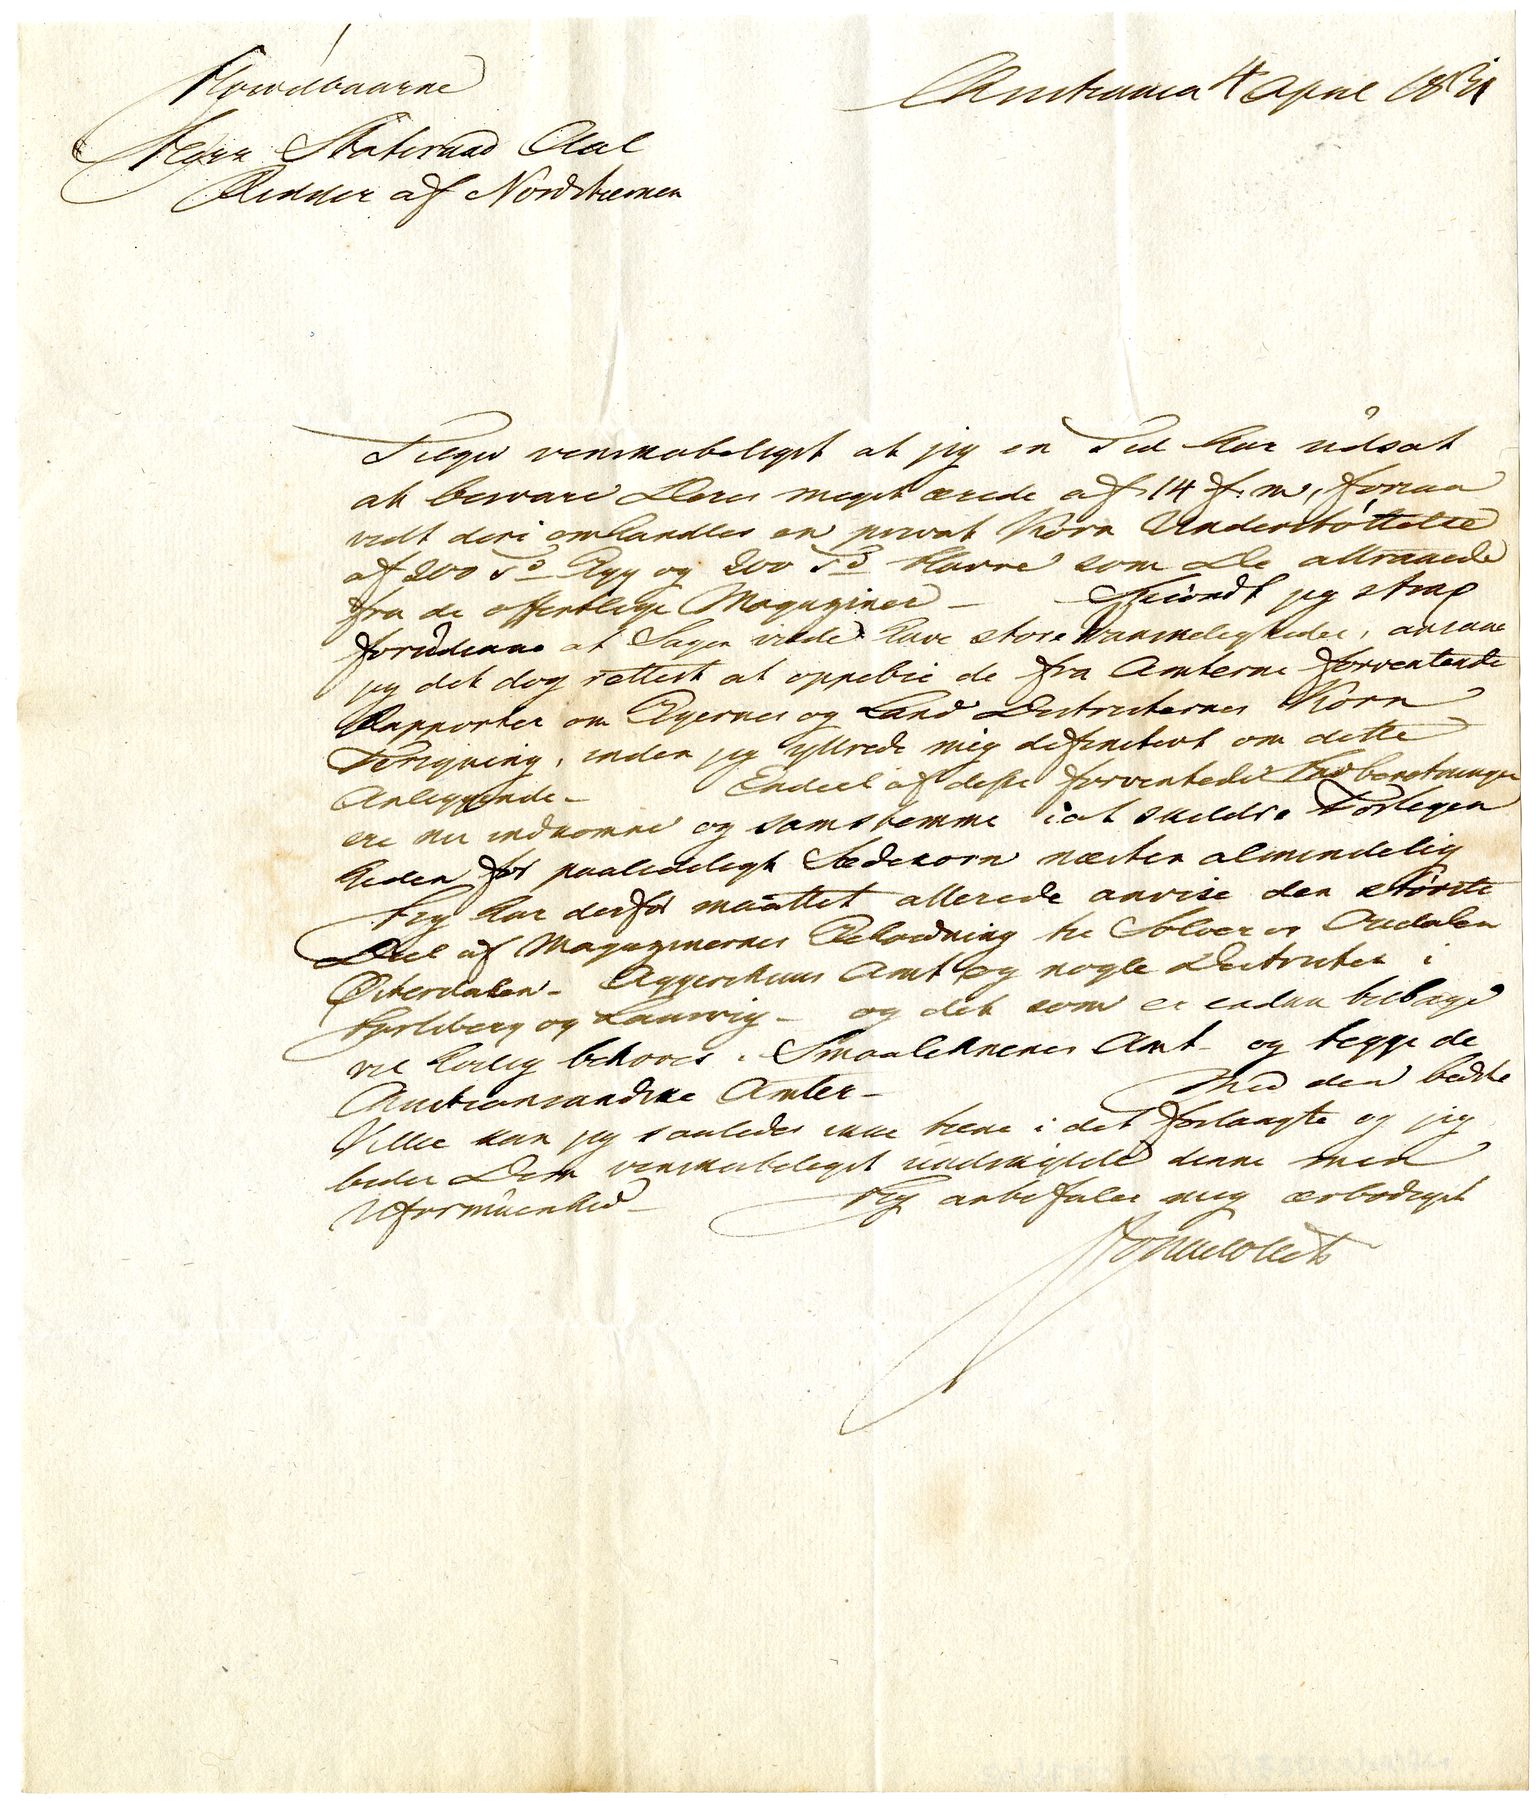 Høivelbaarne
Herr Statsraad Aal
Ridder af Nordstiernen
Christiania 4 April 1831
Tilgiv venskabeligst at jeg en Tid har udsat
at besvare Deres meget ærede af 14 f. m, forsaa
vidt deri omhandles en privat Korn Understøttelse
af 200 Td Byg og 200 Td Havre som De attraaede
fra de offentlige Magaziner - Skiøndt jeg strax
forudsaae at Sagen vilde have store Vanskeligheder, ansaae
jeg det dog rettest at oppebie de fra Amterne forventende
Rapporter om Byernes og Land Districternes Korn
Forsyning, inden jeg yttrede mig definitivt om dette
Anliggende - Endeel af disse forventede Indberetninger
ere nu indkomne og samstemme i at skildre Forlegen
heden for paalideligt Sædekorn næsten almindelig
Jeg har derfor maattet allerede anvise den største
Deel af Magazinernes Beholdning til Soløer og Oudalen
Østerdalen - Aggershuus Amt og nogle Districter i
Jarlsberg og Laurvig - og det som er endnu tilbage
vil høilig behøves i Smaalehnenes Amt - og begge de
Christiansandske Amter - Med den bedste
Villie kan jeg saaledes ikke tiene i det forlangte og jeg
beder Dem venskabeligst undskylde denne min
Uformuenhed - Jeg anbefaler mig ærbødigst